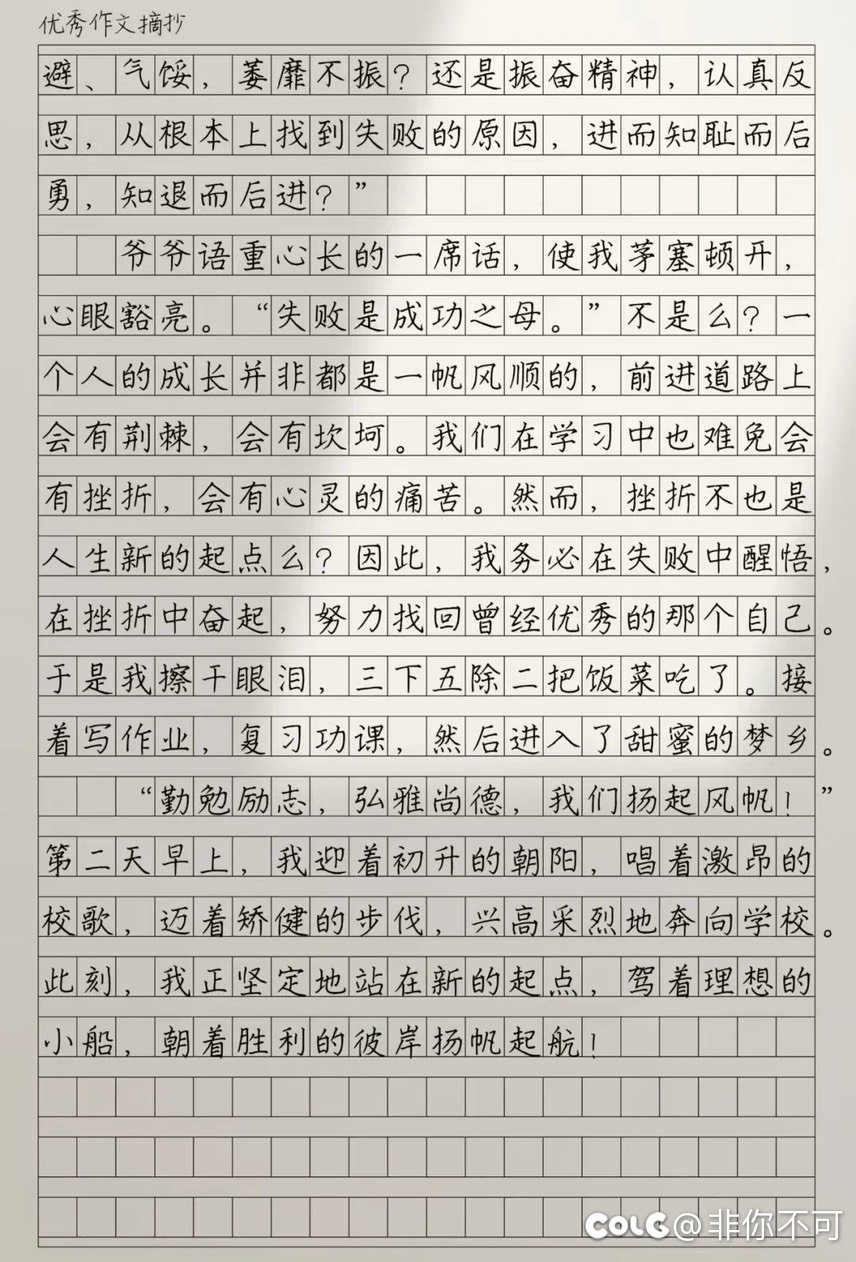 优秀作文摘抄
避、气馁，萎靡不振？还是振奋精神，认真反
思，从根本上找到失败的原因，进而知耻而后
勇，知退而后进？”
爷爷语重心长的一席话，使我茅塞顿开，
心眼豁亮。“失败是成功之母。”不是么？一
个人的成长并非都是一帆风顺的，前进道路上
会有荆棘，会有坎坷。我们在学习中也难免会
有挫折，会有心灵的痛苦。然而，挫折不也是
人生新的起点么？因此，我务必在失败中醒悟，
在挫折中奋起，努力找回曾经优秀的那个自己。
于是我擦干眼泪，三下五除二把饭菜吃了。接
着写作业，复习功课，然后进入了甜蜜的梦乡。
“勤勉励志，弘雅尚德，我们扬起风帆！”
第二天早上，我迎着初升的朝阳，唱着激昂的
校歌，迈着矫健的步伐，兴高采烈地奔向学校。
此刻，我正坚定地站在新的起点，驾着理想的
小船，朝着胜利的彼岸扬帆起航！
COLG@非你不可